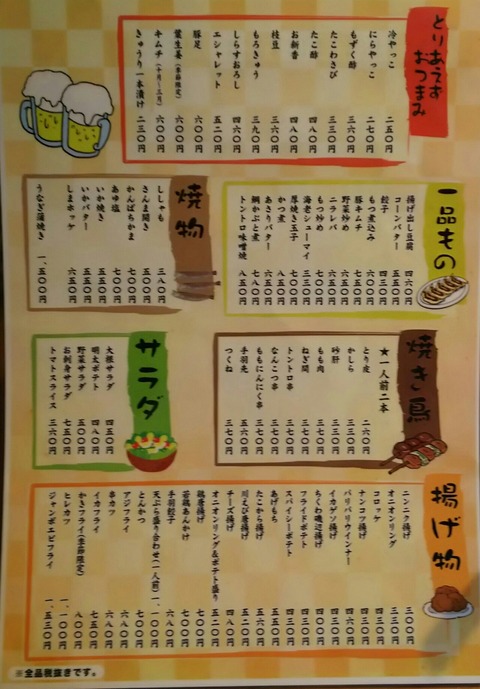 とりあえず
おつまみ
冷やっこ 二五〇円
にらやっこ 二七〇円
もずく酢 三六〇円
たこわさび 三三〇円
たこ酢 四八〇円
お新香 四八〇円
枝豆 三六〇円
もろきゅう 三九〇円
しらすおろし 四六〇円
エシャレット 五二〇円
豚足 六〇〇円
葉生姜(季節限定) 六〇〇円
キムチ(十月～三月) 六〇〇円
きゅうり一本漬け 二三〇円
一品もの
揚げ出し豆腐 四六〇円
コーンバター 五五〇円
餃子 四三〇円
もつ煮込み 六〇〇円
豚キムチ 七五〇円
野菜炒め 六五〇円
ニラレバ 六五〇円
もつ炒め
海老シューマイ
厚焼き玉子
かつ煮
あさりバター
鯛かぶと煮
トントロ味噌焼 八五〇円
焼物
ししゃも 三八〇円
さんま開き 五〇〇円
かんぱちかま 七〇〇円
あゆ塩 七〇〇円
いか焼き 五五〇円
いかバター 五五〇円
しまホッケ 六五〇円
うなぎ蒲焼き 一、五〇〇円
焼き鳥
★一人前二本
とり皮 二六〇円
かしら 三七〇円
砂肝 三七〇円
もも肉 三七〇円
ねぎ間 三七〇円
トントロ串
なんこつ串 三七〇円
ももにんにく串 三七〇円
手羽先
つくね 三七〇円
サラダ
大根サラダ 四五〇円
明太ポテト 四八〇円
野菜サラダ 五〇〇円
お刺身サラダ 六五〇円
トマトスライス 三六〇円
揚げ物
ニンニク揚げ 三〇〇円
オニオンリング 三三〇円
コロッケ
ナンコツ揚げ 四三〇円
パリパリウインナー
イカゲソ揚げ
ちくわ磯辺揚げ
フライドポテト 四三〇円
スパイシーポテト 四三〇円
あげもち
たこから揚げ
川えび唐揚げ 五二〇円
チーズ揚げ 四八〇円
オニオンリング&ポテト盛り 五二〇円
鶏唐揚げ
若鶏あんかけ
手羽餃子
天ぷら盛り合わせ(一人前) 一、一〇〇円
とんかつ
アジフライ
串カツ
イカフライ 七五〇円
かきフライ(季節限定) 八〇〇円
ヒレカツ 一、一〇〇円
ジャンボエビフライ 一、五三〇円
※全品税抜きです。